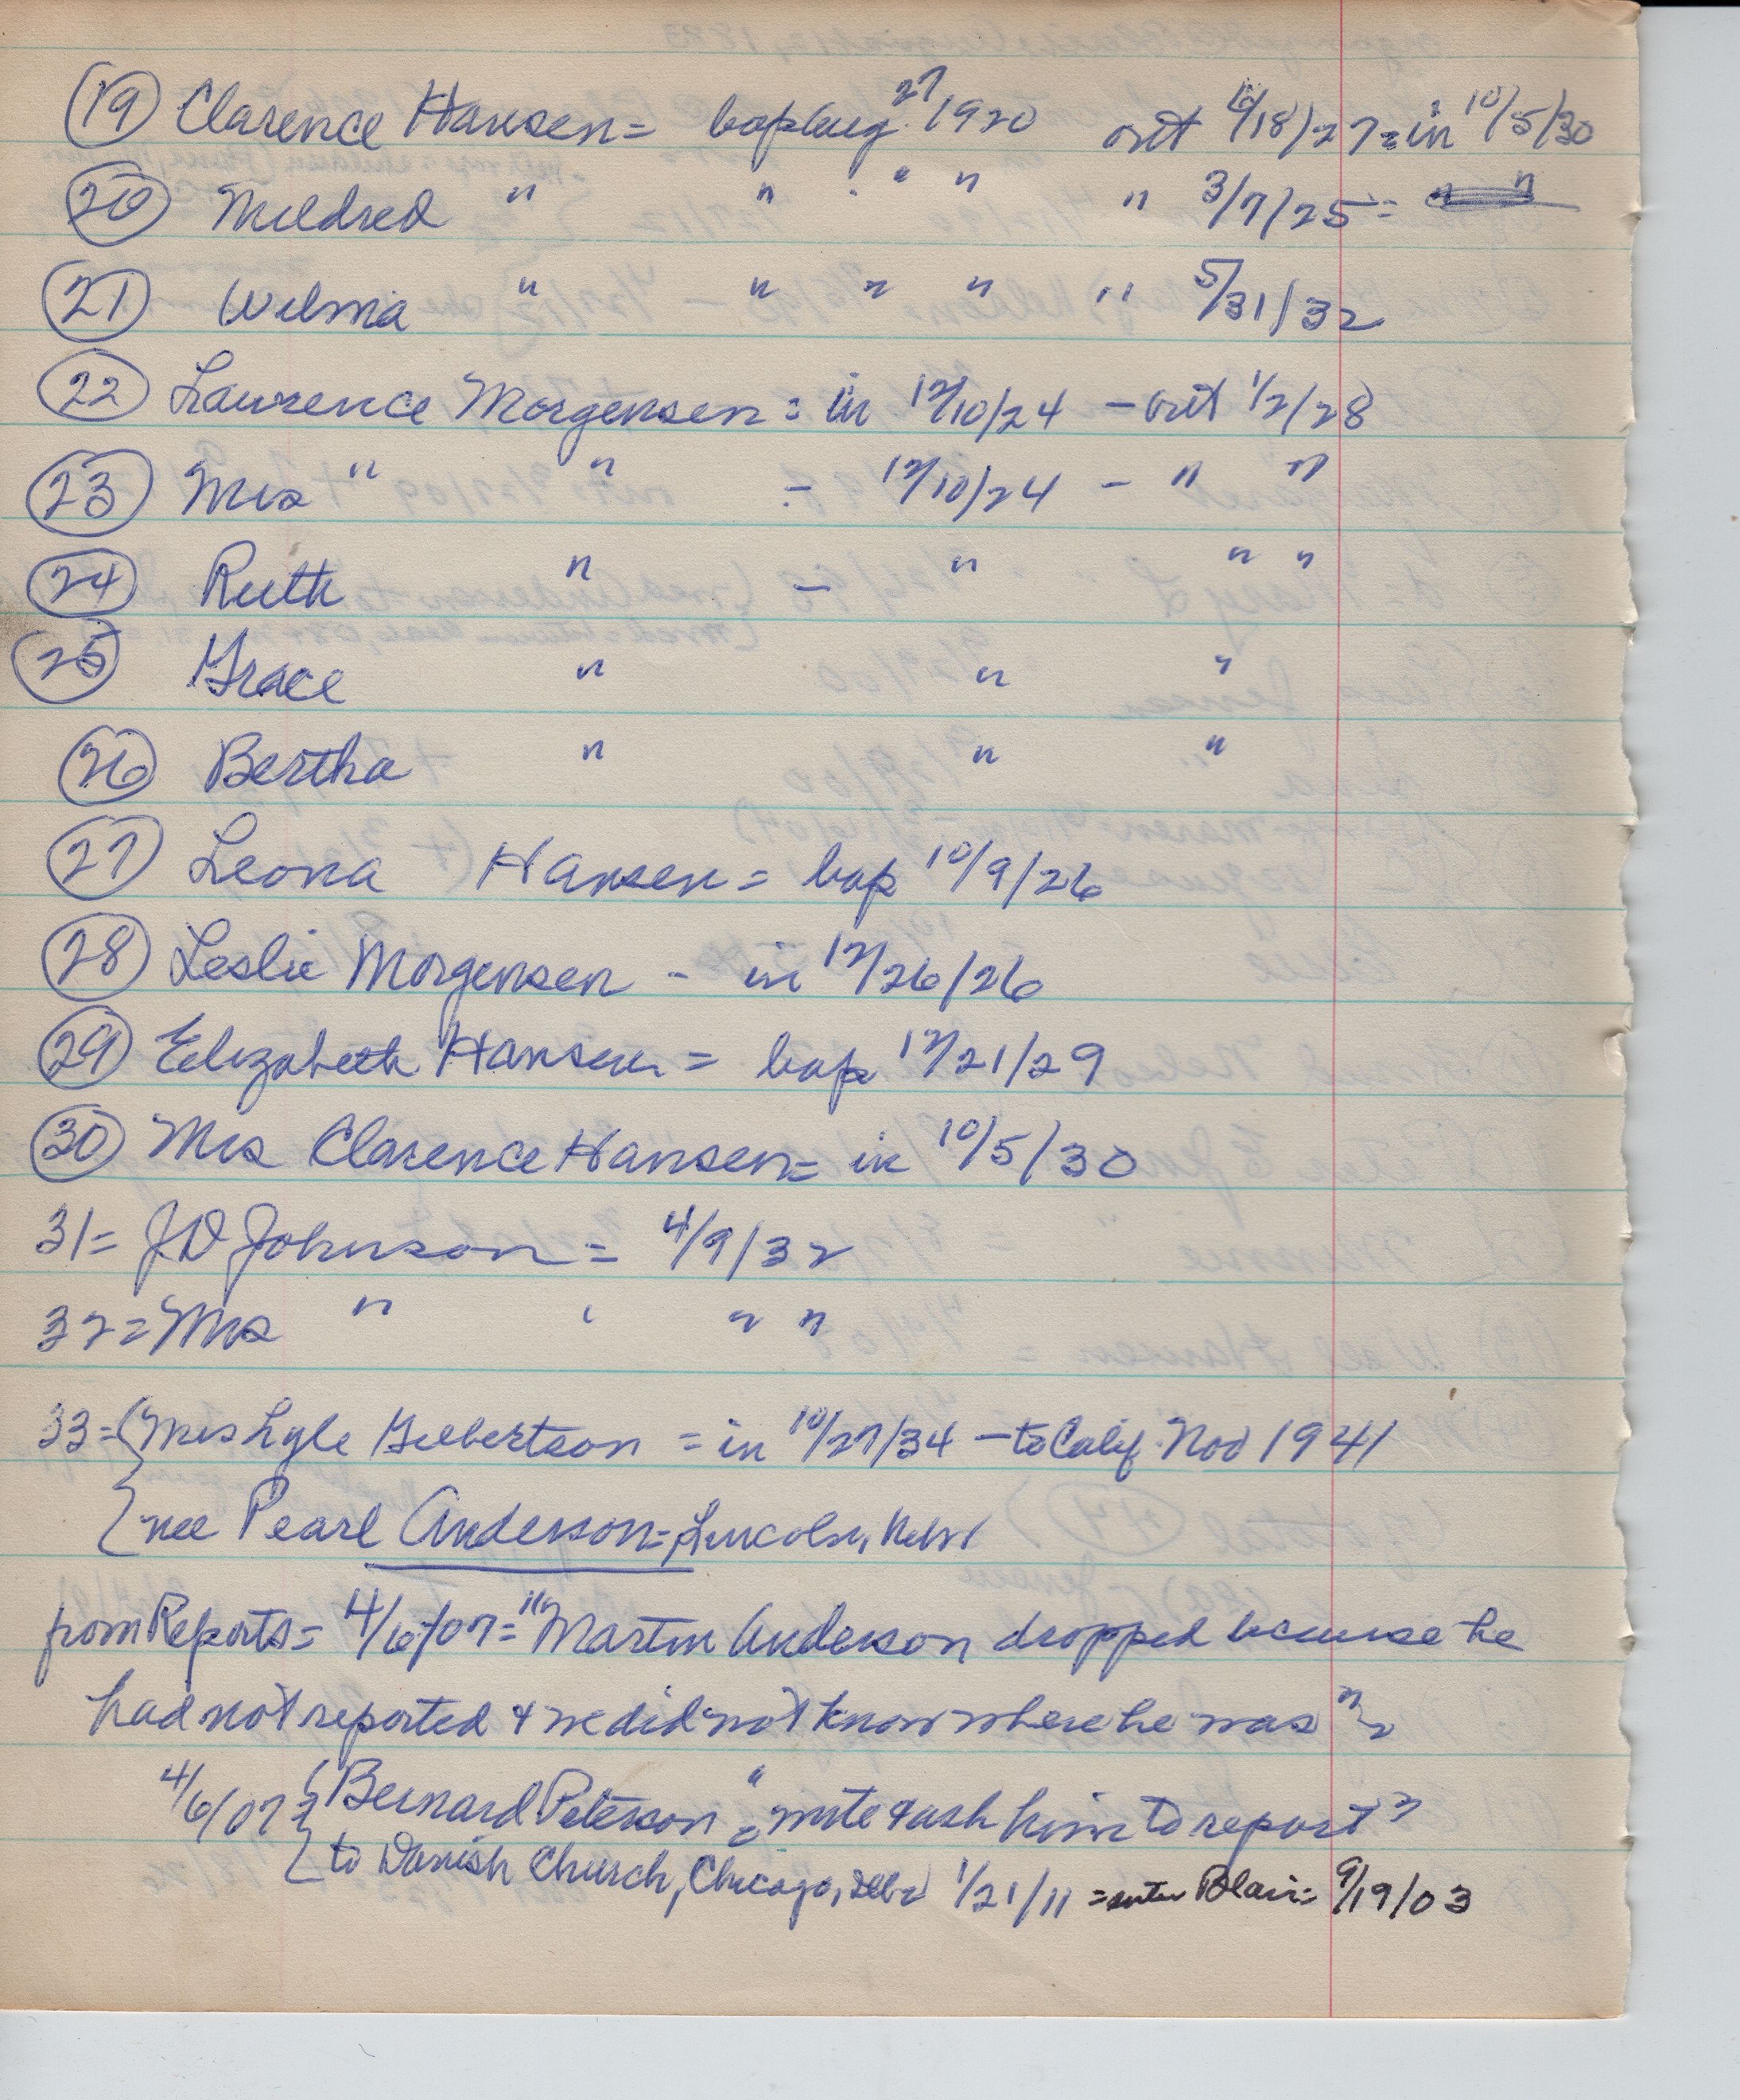 (19) Clarence Hansen = bap Aug 27/1920 out 6/18/27 = in 10/5/30
(20) Mildred " " " " " 3/7/25 = " "
(21) Wilma " " " " " 5/31/32
(22) Lawrence Morgensen = in 12/10/24 - out 1/2/28
(23) Mrs " " - 12/10/24 - " "
(24) Ruth " - " " "
(25) Grace " " "
(26) Bertha " " "
(27) Leona Hansen = bap 10/9/26
(28) Leslie Morgensen - in 12/26/26
(29) Elizabeth Hansen = bap 12/21/29
(30) Mrs Clarence Hansen = in 10/5/30
31 = J D Johnson = 4/9/32
32 = Mrs " ' " "
33 = { Mrs Lyle Gilbertson = in 10/27/34 - to Calif. Nov 1941
{ nee Pearl Anderson = Lincoln, Nebr
from Reports = 4/6/07 = "Martin Anderson dropped because he
had not reported & we did not know where he was" =
4/6/07 = { Bernard Peterson = "write & ask him to report"
{ to Danish Church, Chicago, Ills 1/21/11 = enter Blair = 9/19/03